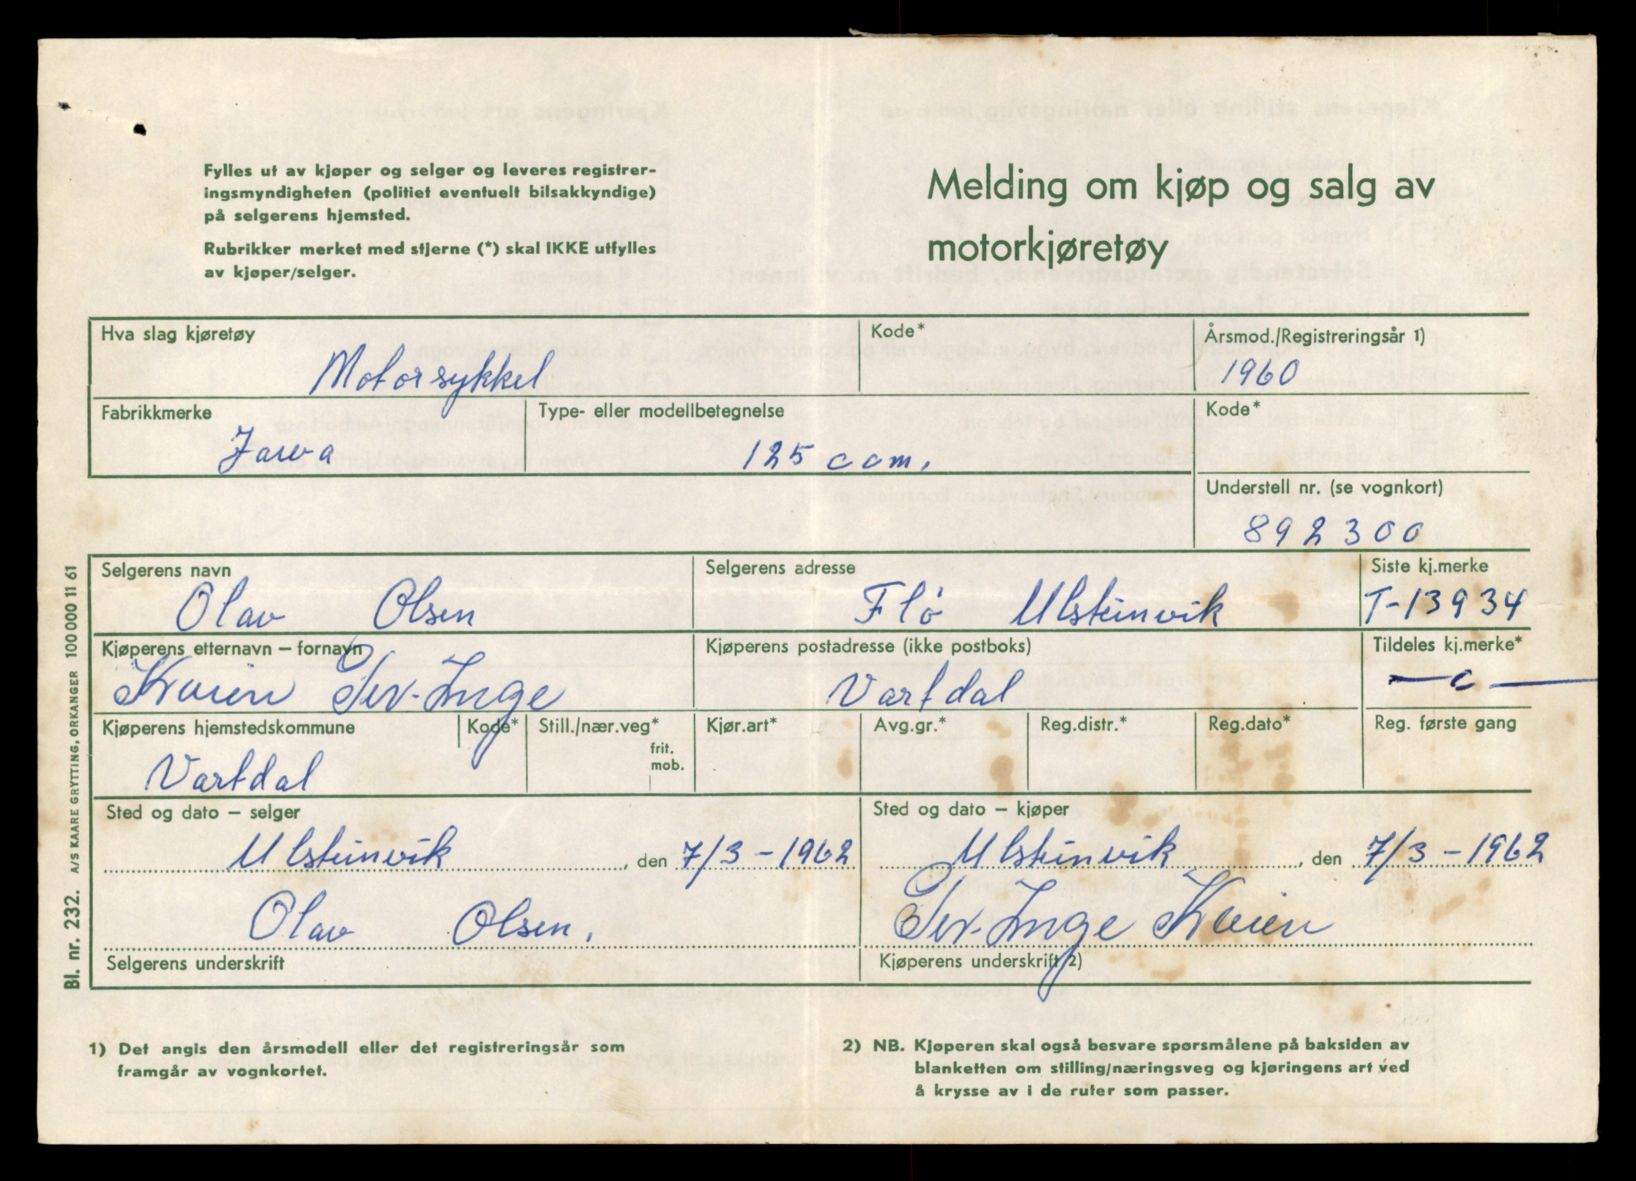 Fylles ut av kjøper og selger og leveres registrer-
ingsmyndigheten (politiet eventuelt bilsakkyndige)
på selgerens hjemsted.
Rubrikker merket med stjerne (*) skal IKKE utfylles
av kjøper/selger.
Melding om kjøp og salg av
motorkjøretøy
Hva slag kjøretøy
Motorsykkel
Kode*
Årsmod./Registreringsår 1)
1960
Fabrikkmerke
Jawa
Type- eller modellbetegnelse
125 ccm.
Kode*
Understell nr. (se vognkort)
892300
Selgerens navn
Olav Olsen
Selgerens adresse
Flø Ulsteinvik
Siste kj.merke
T-13934
Kjøperens etternavn – fornavn
Iver-Inge
Kjøperens postadresse (ikke postboks)
Vartdal
Tildeles kj.merke*
Kjøperens hjemstedskommune
Vartdal
Kode*
Still./nær.veg*
frit.
mob.
Kjør.art*
Avg.gr.*
Reg.distr.*
Reg.dato*
Reg. første gang
Sted og dato – selger
Ulsteinvik, den 7/3-1962
Olav Olsen.
Selgerens underskrift
Sted og dato – kjøper
Ulsteinvik, den 7/3-1962
Iver-Inge
Kjøperens underskrift 2)
1) Det angis den årsmodell eller det registreringsår som
framgår av vognkortet.
2) NB. Kjøperen skal også besvare spørsmålene på baksiden av
blanketten om stilling/næringsveg og kjøringens art ved
å krysse av i de ruter som passer.
Bl. nr. 232. A/S KAARE GRYTTING, ORKANGER 100 000 11 61